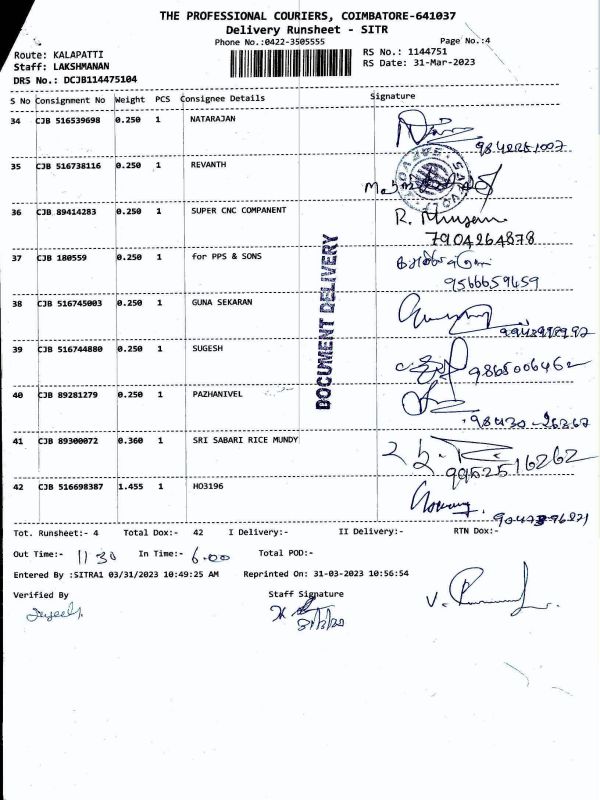 THE PROFESSIONAL COURIERS, COIMBATORE-641037
Delivery Runsheet - SITR
Phone No.:0422-3505555 Page No.:4
Route: KALAPATTI RS No.: 1144751
Staff: LAKSHMANAN RS Date: 31-Mar-2023
DRS No.: DCJB114475104
S No Consignment No Weight PCS Consignee Details Signature
34 CJB 516539698 0.250 1 NATARAJAN
35 CJB 516738116 0.250 1 REVANTH
36 CJB 89414283 0.250 1 SUPER CNC COMPANENT
7904264878
37 CJB 180559 0.250 1 for PPS & SONS
9566659459
38 CJB 516745003 0.250 1 GUNA SEKARAN
39 CJB 516744880 0.250 1 SUGESH
DOCUMENT DELIVERY
40 CJB 89281279 0.250 1 PAZHANIVEL
41 CJB 89300072 0.360 1 SRI SABARI RICE MUNDY
9952516262
42 CJB 516698387 1.455 1 HO3196
Tot. Runsheet:- 4 Total Dox:- 42 I Delivery:- II Delivery:- RTN Dox:-
Out Time:- 11 30 In Time:- 6.00 Total POD:-
Entered By :SITRA1 03/31/2023 10:49:25 AM Reprinted On: 31-03-2023 10:56:54
Verified By Staff Signature